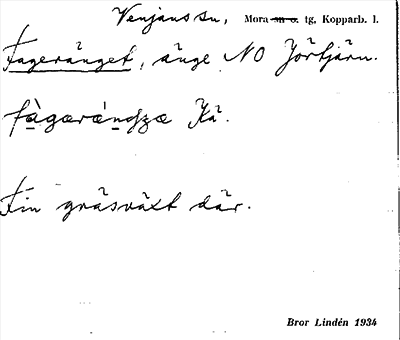 Venjans sn, Mora sn o. tg, Kopparb. l.
Fageränget, änge NO Jörtjärn.
fàgæráṇʤæ Kå.
Fin gräsväxt där.
Bror Lindén 1934